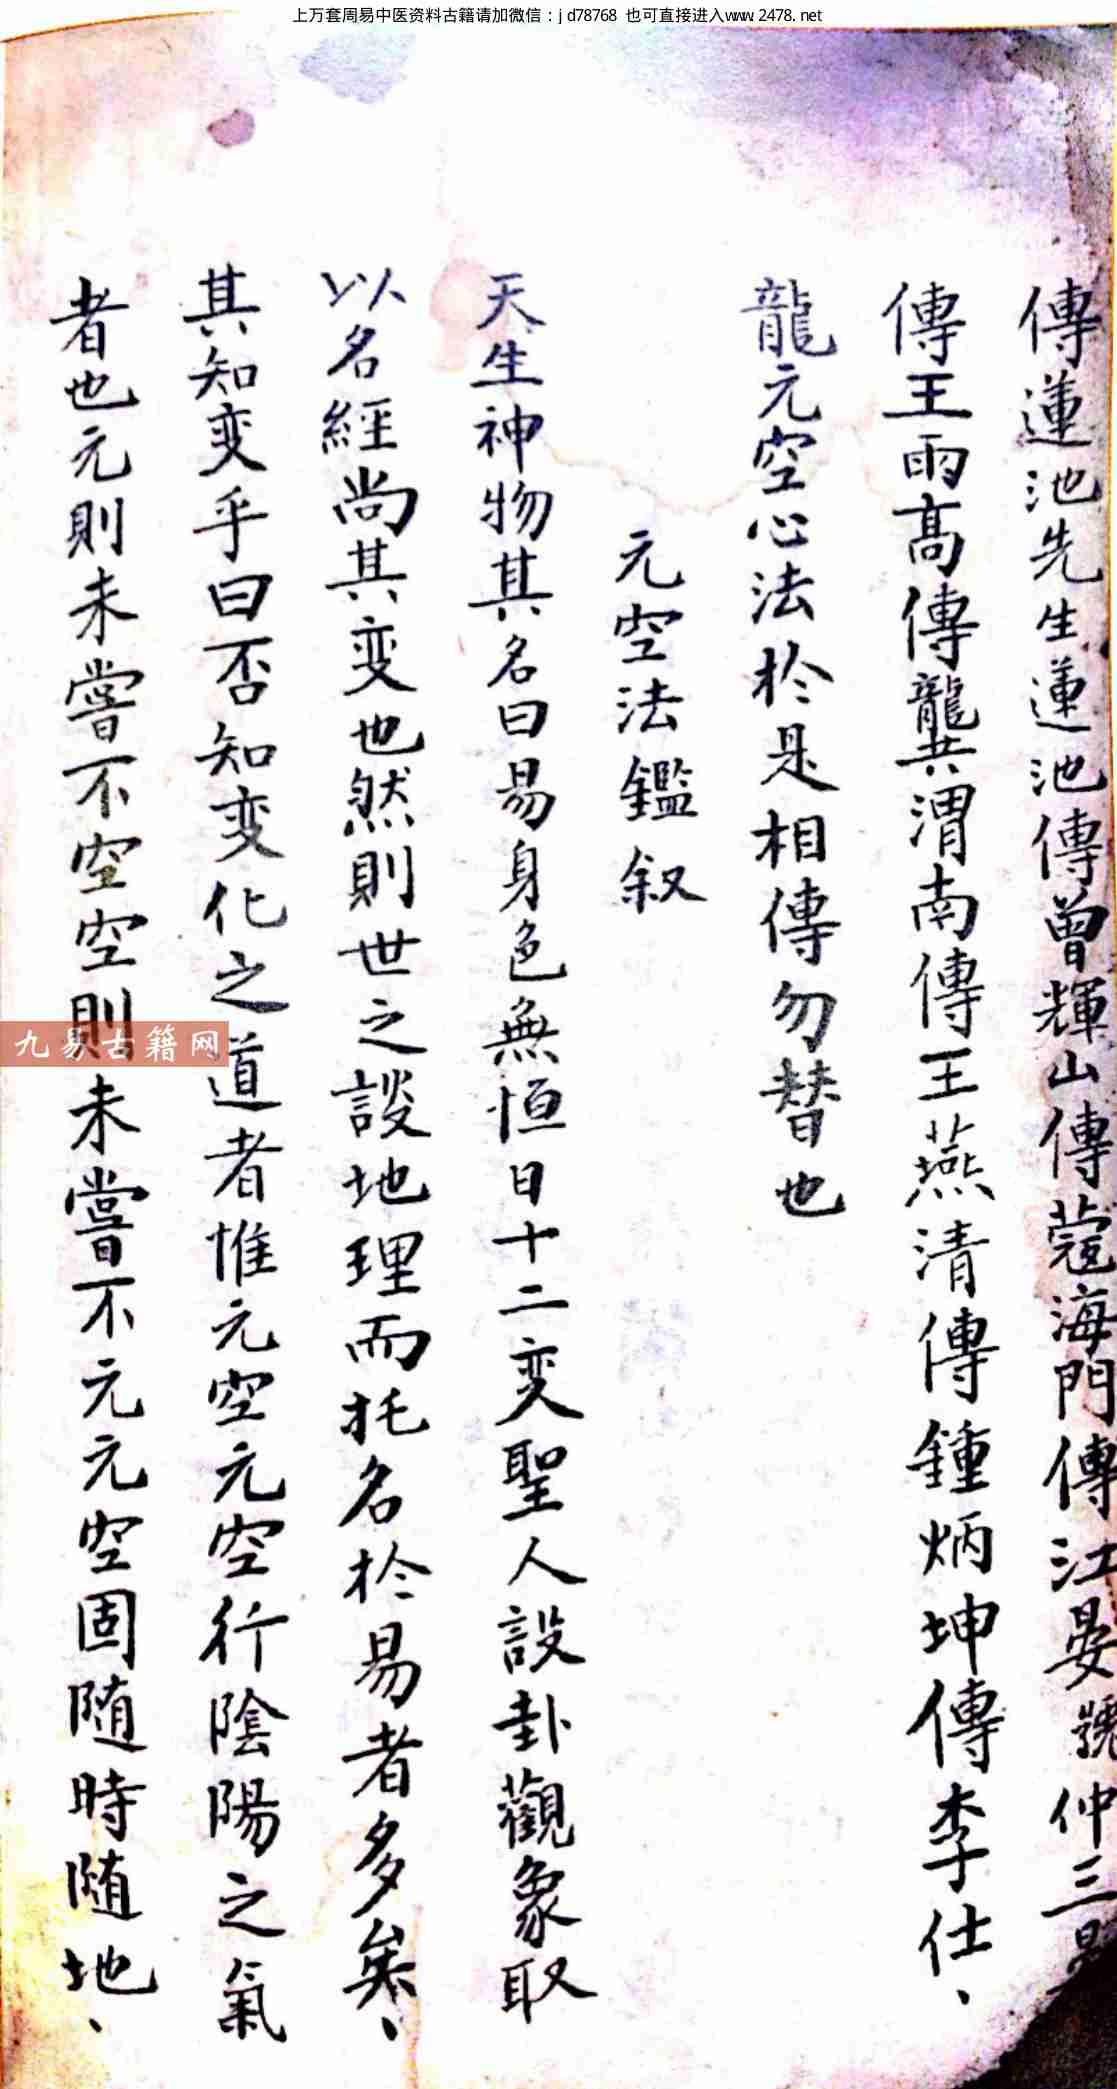 上万套周易中医资料古籍请加微信：jd78768 也可直接进入www.2478.net
傳蓮池先生蓮池傳曾輝山傳蔻海門傳江晏號仲三
傳王雨高傳龔渭南傳王燕清傳鍾炳坤傳李仕、
龍元空心法於是相傳勿替也
元空法鑑叙
天生神物其名曰易身色無恒日十二变聖人設卦觀象取
以名經尚其变也然則世之談地理而托名於易者多矣、
其知变乎曰否知变化之道者惟元空元空行陰陽之氣
者也元則未嘗不空空則未嘗不元元空固随時随地、
九易古籍网